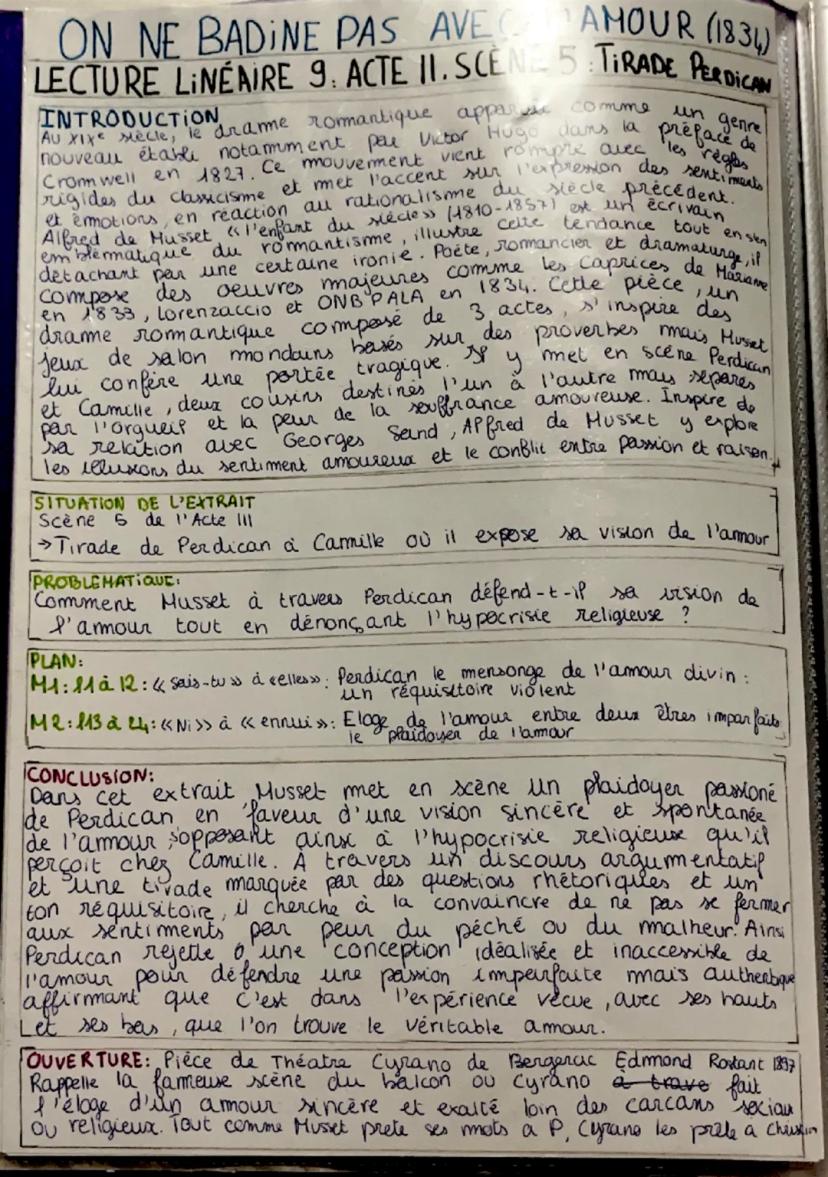 ON NE BADINE PAS AVEC L'AMOUR (1834)
LECTURE LINÉAIRE 9: ACTE II. SCÈNE 5: TIRADE PERDICAN
INTRODUCTION
Au XIXe siècle, le drame romantique apparait comme un genre
nouveau établi notamment par Victor Hugo dans la préface de
Cromwell en 1827. Ce mouvement vient rompre avec les règles
rigides du classicisme et met l'accent sur l'expression des sentiments
et émotions, en réaction au rationalisme du siècle précédent.
Alfred de Musset « l'enfant du siècle » (1810-1857) est un écrivain
emblématique du romantisme, illustre cette tendance tout en s'en
détachant par une certaine ironie. Poète, romancier et dramaturge, il
compose des oeuvres majeures comme les Caprices de Marianne
en 1833, Lorenzaccio et ONBPALA en 1834. Cette pièce, un
drame romantique composé de 3 actes, s'inspire des
jeux de salon mondains basés sur des proverbes mais Musset
lui confère une portée tragique. Il y met en scène Perdican
et Camille, deux cousins destinés l'un à l'autre mais séparés
par l'orgueil et la peur de la souffrance amoureuse. Inspiré de
sa relation avec Georges Sand, Alfred de Musset y explore
les illusions du sentiment amoureux et le conflit entre passion et raison.
SITUATION DE L'EXTRAIT
Scène 5 de l'Acte III
→ Tirade de Perdican à Camille où il expose sa vision de l'amour
PROBLÉMATIQUE:
Comment Musset à travers Perdican défend-t-il sa vision de
l'amour tout en dénonçant l'hypocrisie religieuse ?
PLAN:
M1: l1 à 12: « Sais-tu » à « elles »: Perdican le mensonge de l'amour divin:
un réquisitoire violent
M2: l13 à 24: « Ni » à « ennui »: Eloge de l'amour entre deux êtres imparfaits
le plaidoyer de l'amour
CONCLUSION:
Dans cet extrait Musset met en scène un plaidoyer passioné
de Perdican en faveur d'une vision sincère et spontanée
de l'amour s'opposant ainsi à l'hypocrisie religieuse qu'il
perçoit chez Camille. A travers un discours argumentatif
et une tirade marquée par des questions rhétoriques et un
ton réquisitoire, il cherche à la convaincre de ne pas se fermer
aux sentiments par peur du péché ou du malheur. Ainsi
Perdican rejette une conception idéalisée et inaccessible de
l'amour pour défendre une passion imparfaite mais authentique
affirmant que c'est dans l'expérience vécue, avec ses hauts
et ses bas, que l'on trouve le véritable amour.
OUVERTURE: Pièce de Théatre Cyrano de Bergerac Edmond Rostant 1897
Rappelle la fameuse scène du balcon où Cyrano a trave fait
l'éloge d'un amour sincère et exalté loin des carcans sociaux
ou religieux. Tout comme Musset prete ses mots à P, Cyrano les prête à Christian